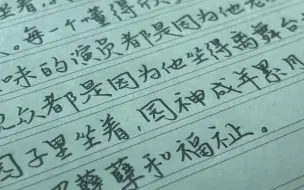 。每一个懂得欣
味的演员都是因为他老
观众都是因为他坐得离舞台
园子里坐着,因神成年累月
孽和福祉。